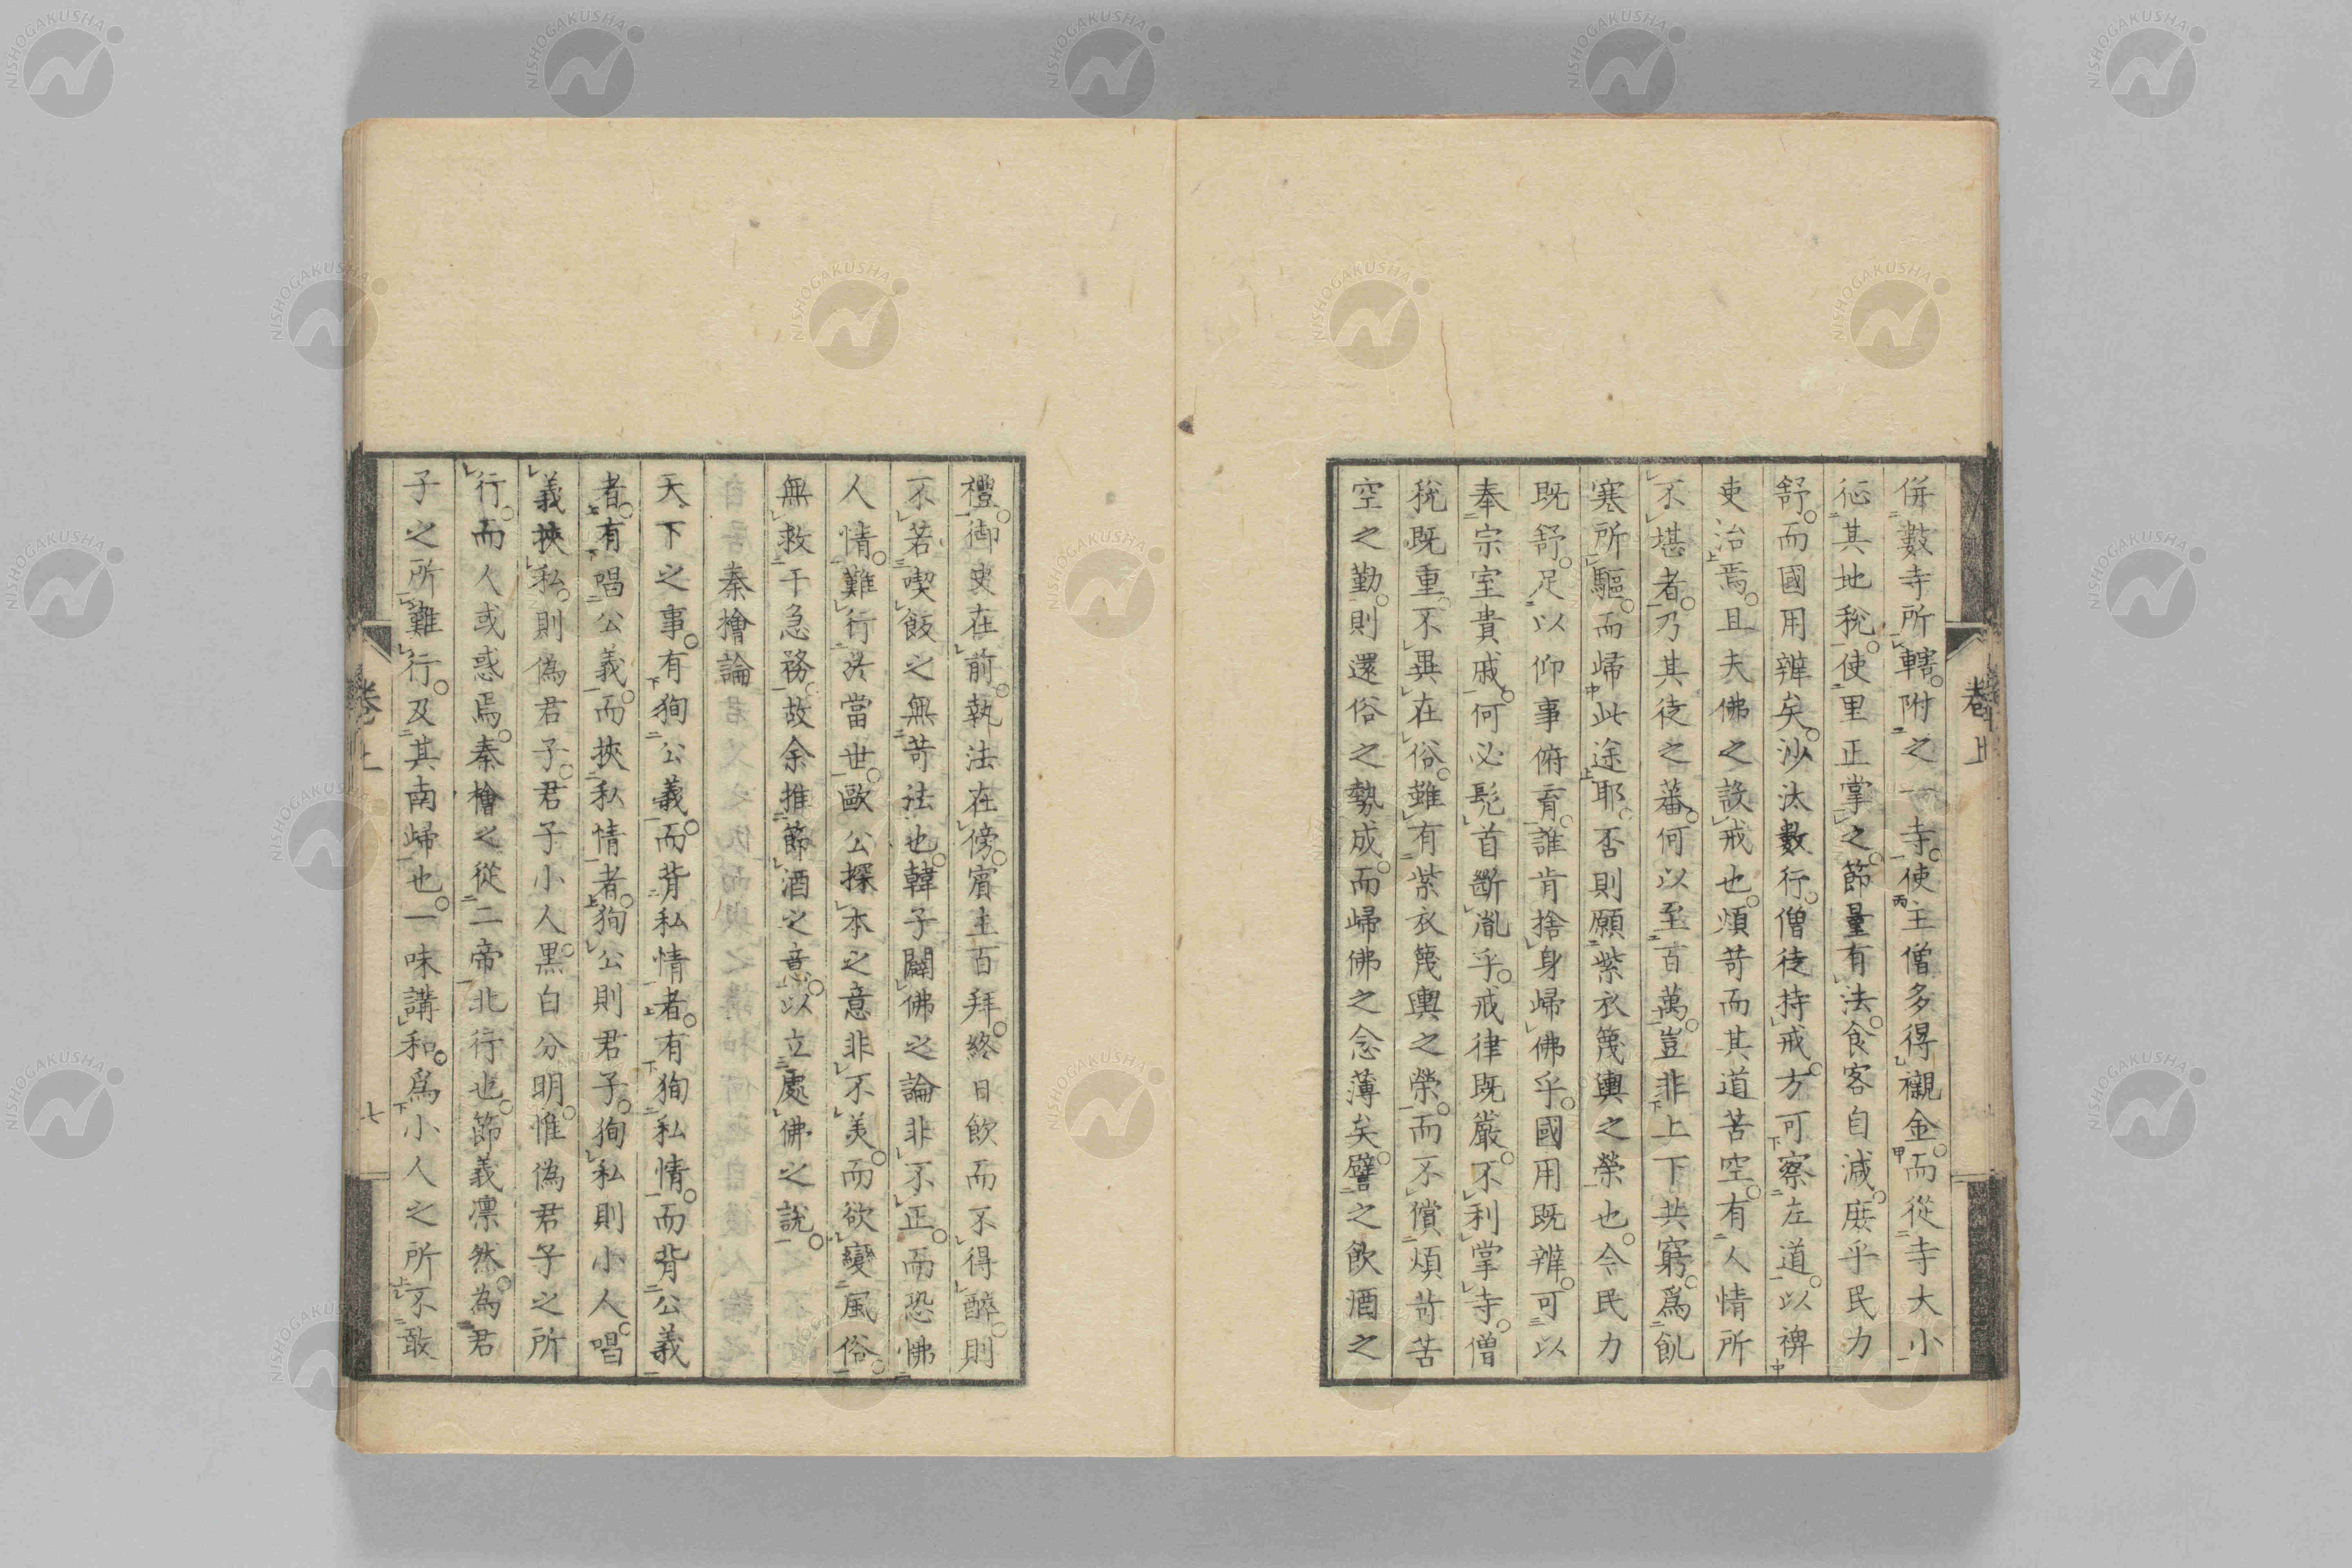 併數寺所轄。附之一寺。使主僧多得襯金。而從寺大小
征其地稅。使里正掌之。節量有法。食客自減。庶乎民力
舒。而國用辨矣。沙汰數行。僧徒持戒。方可察左道。以裨
吏治焉。且夫佛之設戒也。煩苛而其道苦空。有人情所
不堪者。乃其徒之蕃。何以至百萬。豈非上下共窮。爲飢
寒所驅。而歸此途耶。否則願紫衣籃輿之榮也。今民力
既舒。足以仰事俯育。誰肯捨身歸佛乎。國用既辨。可以
奉宗室貴戚。何必髡首斷胤乎。戒律既嚴。不利掌寺。僧
稅既重。不異在俗。雖有紫衣籃輿之榮。而不償煩苛苦
空之勤。則還俗之勢成。而歸佛之念薄矣。譬之飲酒之
卷上
禮。御史在前。執法在傍。賓主百拜。終日飲而不得醉。則
不若喫飯之無苛法也。韓子闢佛之論非不正。而恐怫
人情。難行於當世。歐公探本之意非不美。而欲變風俗。
無救干急務。故余推節酒之意。以立處佛之說。
秦檜論
天下之事。有狥公義。而背私情者。有狥私情。而背公義
者。有唱公義。而挾私情者。狥公則君子。狥私則小人。唱
義挾私。則偽君子。君子小人黑白分明。惟偽君子之所
行。而人或惑焉。秦檜之從二帝北行也。節義凛然。為君
子之所難行。及其南歸也。一味講和。爲小人之所不敢
卷上
七
NISHOGAKUSHA